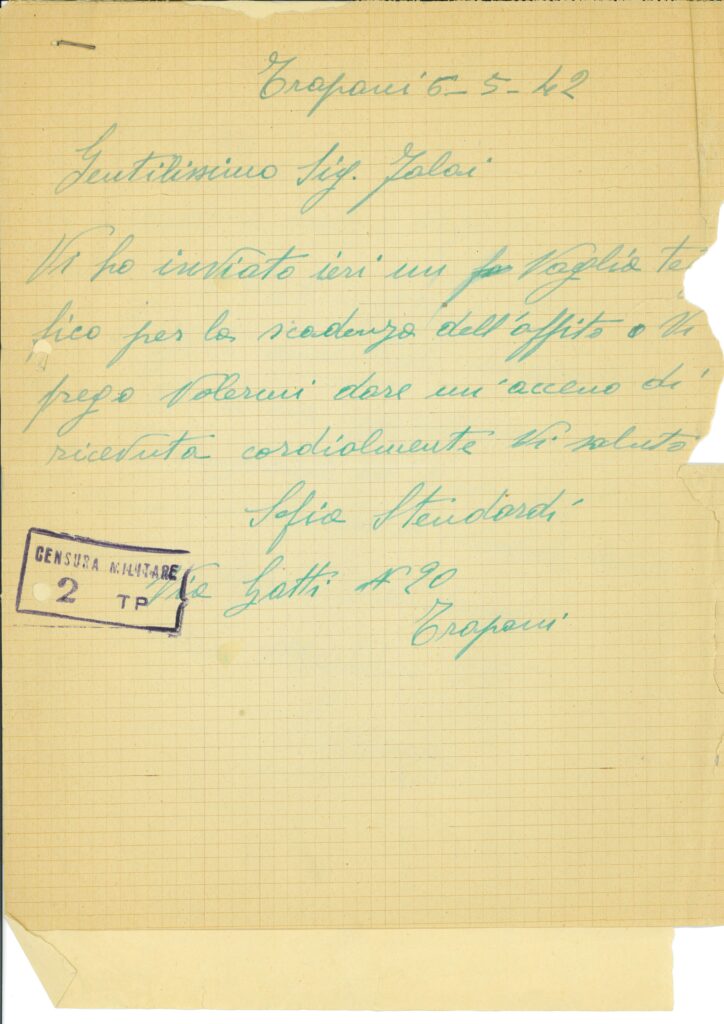 Trapani 6-5-42
Gentilissimo Sig. Jalai
Vi ho inviato ieri un Vaglia te
fico per la scadenza dell'affito e Vi
prego Volermi dare un'acceno di
riceduta cordialmente Vi saluto
Sofia Stendardi
CENSURA MILITARE
2 TP
Via Gatti N 20
Trapani